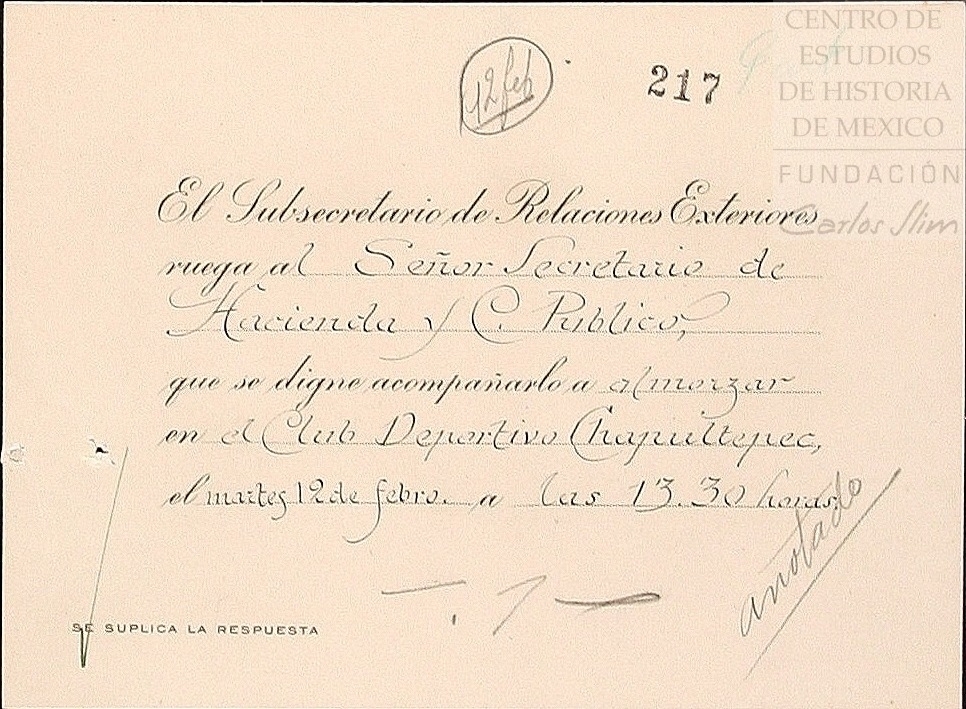 CENTRO DE
ESTUDIOS
DE HISTORIA
DE MEXICO
FUNDACIÓN
Carlos Slim
12 feb
217
El Subsecretario de Relaciones Exteriores
ruega al Señor Secretario de
Hacienda y C. Publico,
que se digne acompañarlo a almorzar
en el Club Deportivo Chapultepec,
el martes 12 de febro. a las 13.30 horas.
anotado
SE SUPLICA LA RESPUESTA